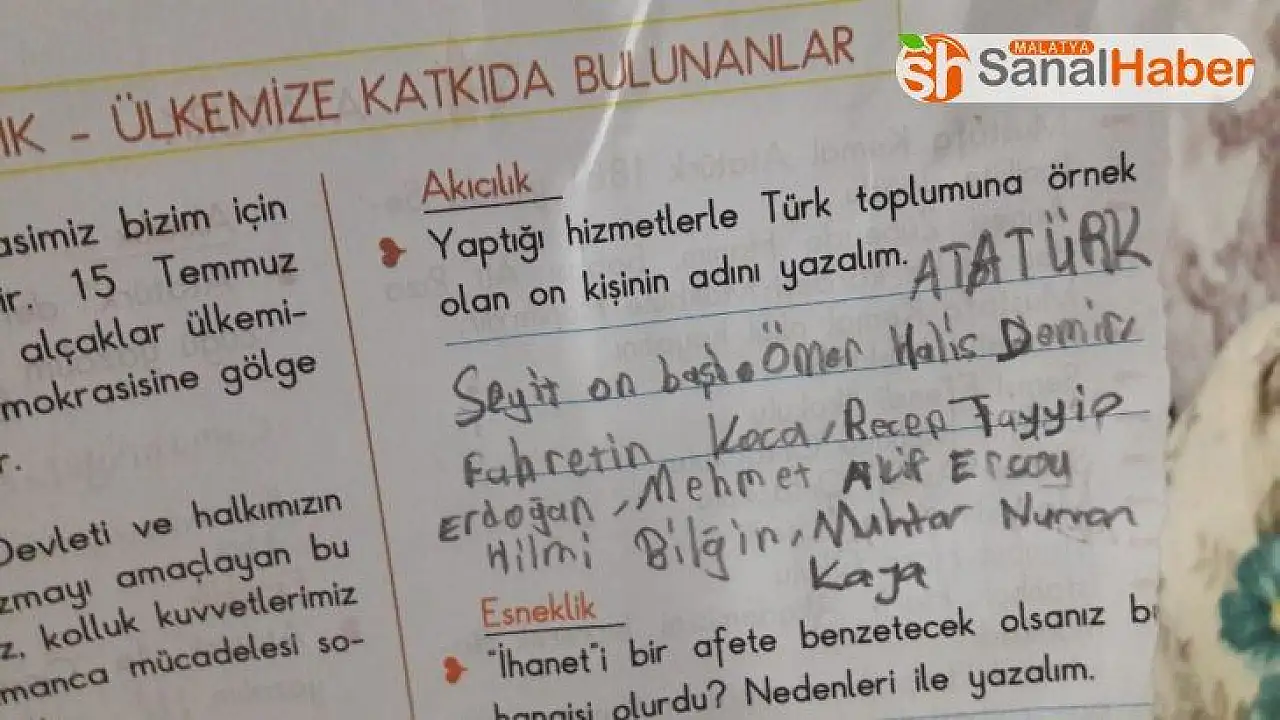 MALATYA
sh SanalHaber
IK - ÜLKEMİZE KATKIDA BULUNANLAR
asimiz bizim için
ir. 15 Temmuz
alçaklar ülkemi-
mokrasisine gölge
r.
Devleti ve halkımızın
zmayı amaçlayan bu
z, kolluk kuvvetlerimiz
manca mücadelesi so-
Akıcılık
Yaptığı hizmetlerle Türk toplumuna örnek
olan on kişinin adını yazalım. ATATÜRK
Seyit on başı Ömer Halis Demir
Fahretin Koca, Recep Tayyip
Erdoğan, Mehmet Akif Ersoy
Hilmi Bilğin, Muhtar Nurran
Kaya
Esneklik
"İhanet"i bir afete benzetecek olsanız b
hangisi olurdu? Nedenleri ile yazalım.